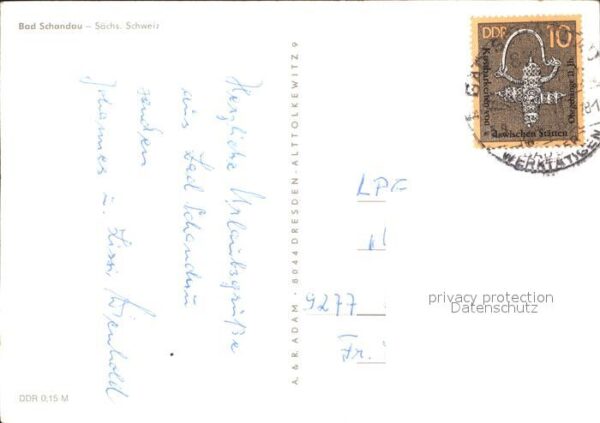 Bad Schandau – Sächs. Schweiz
Herzliche Urlaubsgrüße
aus Bad Schandau
senden
Johannes u. Lissi Wienhold
A. & R. ADAM · 8044 DRESDEN-ALTTOLKEWITZ 9
DDR 10
Kostbarkeiten von
slawischen Stätten
WERKTÄTIGEN
LPG
9277
Fr.
privacy protection
Datenschutz
DDR 0,15 M